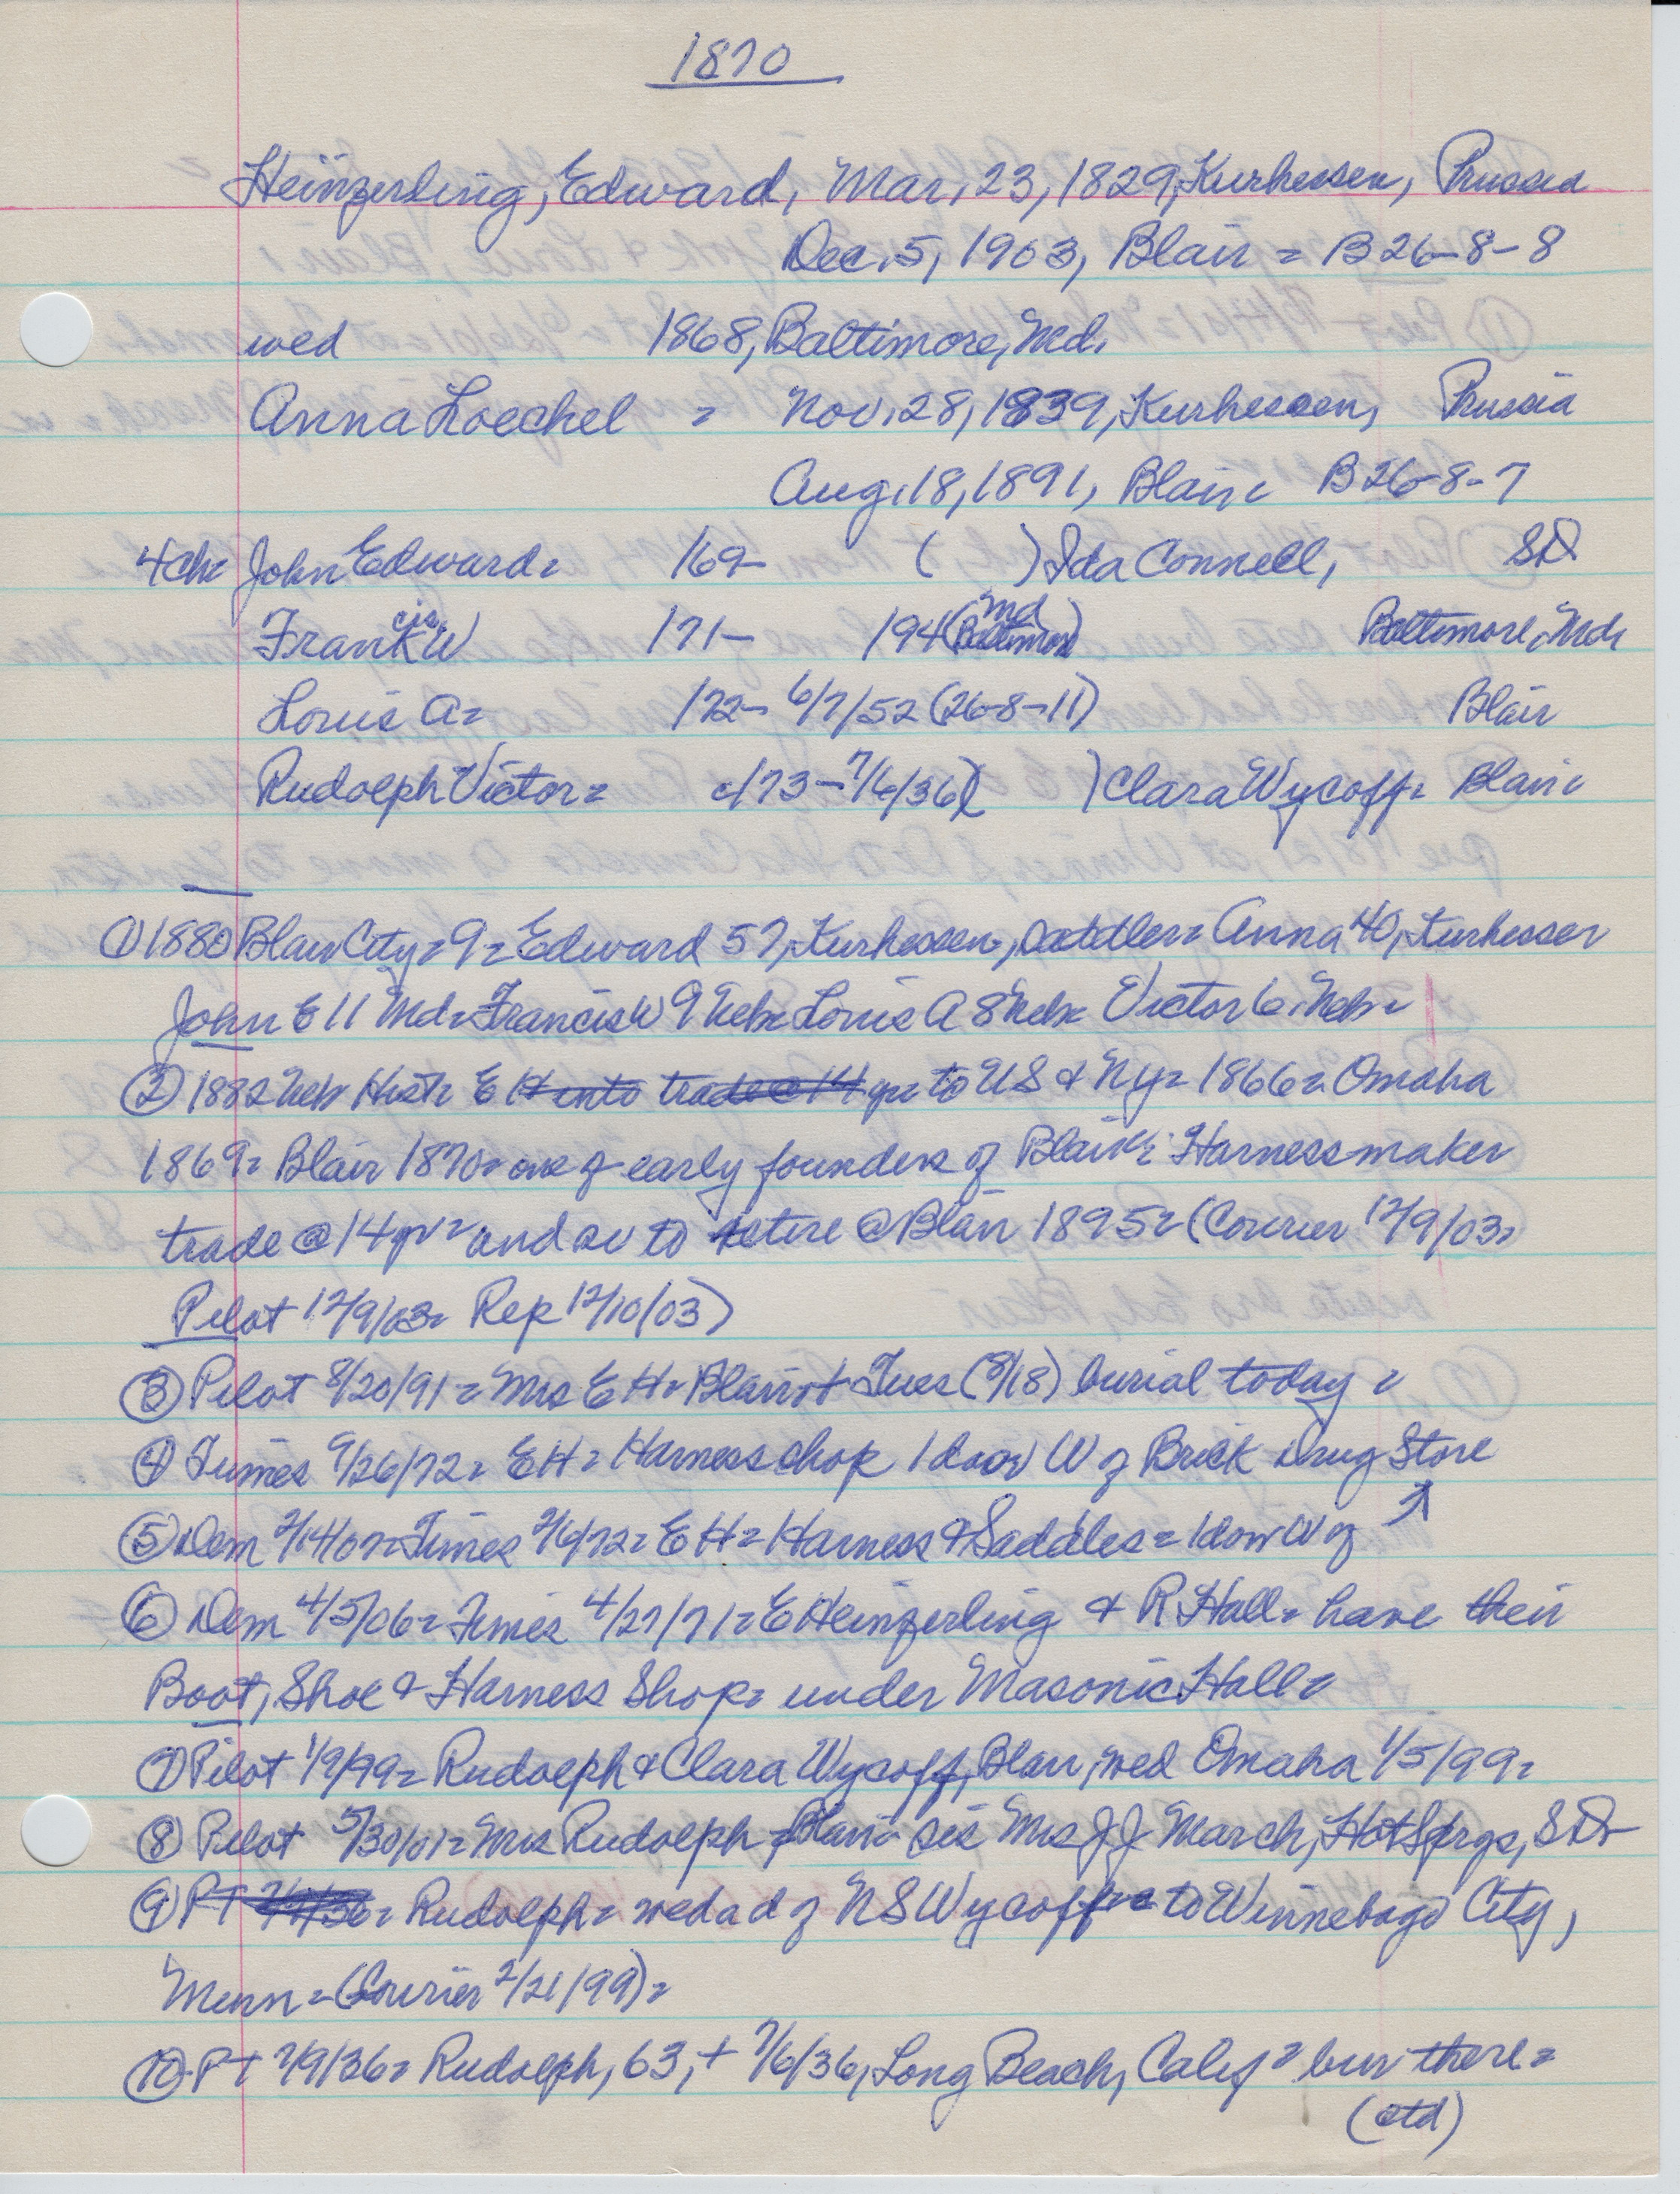 1870
Heinzerling, Edward, Mar, 23, 1829, Kurhessen, Prussia
Dec. 5, 1903, Blair = B 26-8-8
wed 1868, Baltimore, Md.
Anna Loechel = Nov. 28, 1839, Kurhessen, Prussia
Aug. 18, 1891, Blair = B 26-8-7
4 ch= John Edward = /69- ( ) Ida Connell, SD
Francis W /71- 194 (Baltimore Md) Baltimore, Md,
Louis A= /72- 6/7/52 (26-8-11) Blair
Rudolph Victor = c/73-7/6/36 ( ) Clara Wycoff= Blair=
① 1880 Blair City= 9= Edward 57, Kurhessen, = Anna 40, Kurhessen
John E 11 Md= Francis W 9 Neb= Louis A 8 Neb= Victor 6 Neb=
② 1882 Neb Hist= E H into trade @ 14 yr= to US & NY= 1866= Omaha
1869= Blair 1870= one of early founders of Blair= Harnessmaker
trade @ 14 yr= and so to retire @ Blair 1895= (Courier 12/9/03=
Pilot 12/9/03= Rep 12/10/03)
③ Pilot 8/20/91 = Mrs E H= Blair + Tues (8/18) burial today =
④ Times 9/26/72= EH= Harness shop 1 door W of Brick Drug Store
⑤ Dem 2/14/07= Times 2/6/72= E H= Harness & Saddles = 1 door W of ↑
⑥ Dem 4/5/06= Times 4/27/71= E Heinzerling & R Hall= have their
Boot, Shoe & Harness Shop= under Masonic Hall=
⑦ Pilot 1/9/99= Rudolph & Clara Wycoff, Blair, wed Omaha 1/5/99=
⑧ Pilot 5/30/01= Mrs Rudolph = Blair= sis Mrs J J March, Hot Sprgs, SD-
⑨ PT 7/9/36= Rudolph= wed a d of N S Wycoff = to Winnebago City,
Minn = (Courier 2/21/99)=
⑩ PT 7/9/36= Rudolph, 63, + 7/6/36, Long Beach, Calif = bur there=
(ctd)